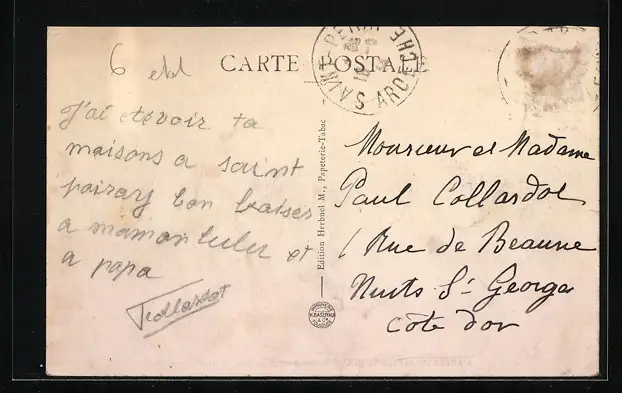 6
CARTE POSTALE
SAINT-PERAY
ARDECHE
J'ai etevoir ta
maisons a saint
pairay bon baises
a maman et
a papa
Collardot
Edition Herbuel M., Papeterie-Tabac
Monsieur et Madame
Paul Collardot
1 Rue de Beaune
Nuits St Georges
Côte d'or